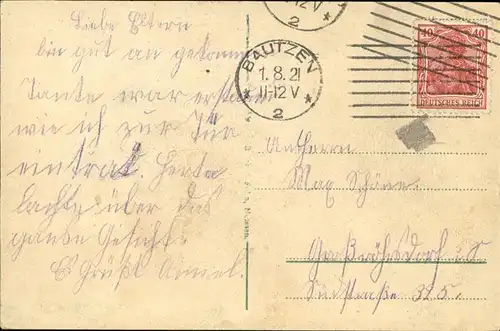 Liebe Eltern
bin gut an gekommen
Tante war erstaunt
wie ich zur Tür
eintrat. Herta
lachte über das
ganze Gesicht.
Es grüßt
12 V
2
BAUTZEN
1.8.21
11-12 V
* 2 *
40 40
DEUTSCHES REICH
Max Schöne.
Großröhrsdorf i. S
Südstraße 335.